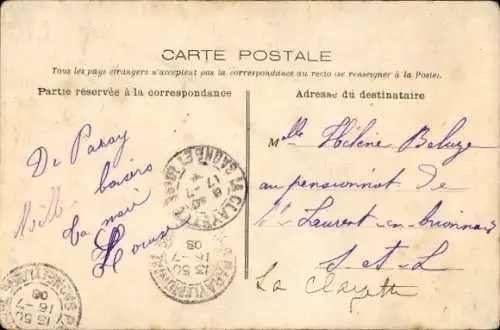 CARTE POSTALE
Tous les pays étrangers n'acceptent pas la correspondance au recto (se renseigner à la Poste).
Partie réservée à la correspondance
Adresse du destinataire
De Paray
Mille baisers
Ta
Louise
Mlle Hélène Beluze
au pensionnat de
St Laurent-en-brionnais
S-et-L
La Clayette
LA CLAYETTE
SAONE ET LOIRE
17-7
08
PARAY-LE-MONIAL
13 50
16-7
08
13 50
16-7
08